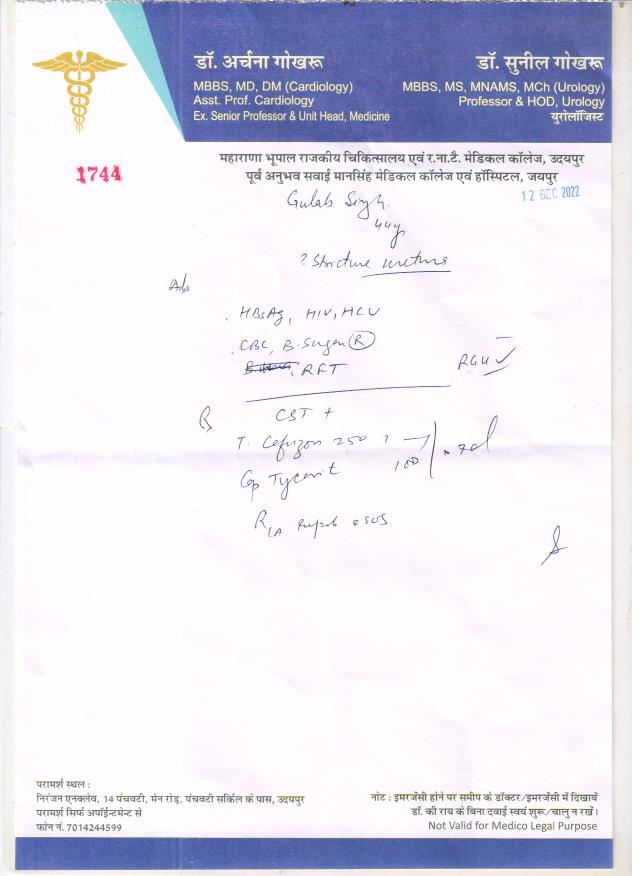 डॉ. अर्चना गोखरू
MBBS, MD, DM (Cardiology)
Asst. Prof. Cardiology
Ex. Senior Professor & Unit Head, Medicine
डॉ. सुनील गोखरू
MBBS, MS, MNAMS, MCh (Urology)
Professor & HOD, Urology
युरोलॉजिस्ट
महाराणा भूपाल राजकीय चिकित्सालय एवं र.ना.टै. मेडिकल कॉलेज, उदयपुर
पूर्व अनुभव सवाई मानसिंह मेडिकल कॉलेज एवं हॉस्पिटल, जयपुर
1744
12 DEC 2022
Gulab Singh
44y
? Stricture urethra
Adv
HBsAg, HIV, HCV
CBC, B. Sugar (R)
RFT
RGU ✓
CST +
T. Cefuzon 250
Cap
परामर्श स्थल :
निरंजन एनक्लेव, 14 पंचवटी, मेन रोड़, पंचवटी सर्किल के पास, उदयपुर
परामर्श सिर्फ अपॉईन्टमेन्ट से
फोन नं. 7014244599
नोट : इमरजेंसी होने पर समीप के डॉक्टर/इमरजेंसी में दिखावें
डॉ. की राय के बिना दवाई स्वयं शुरू/चालु न रखें।
Not Valid for Medico Legal Purpose